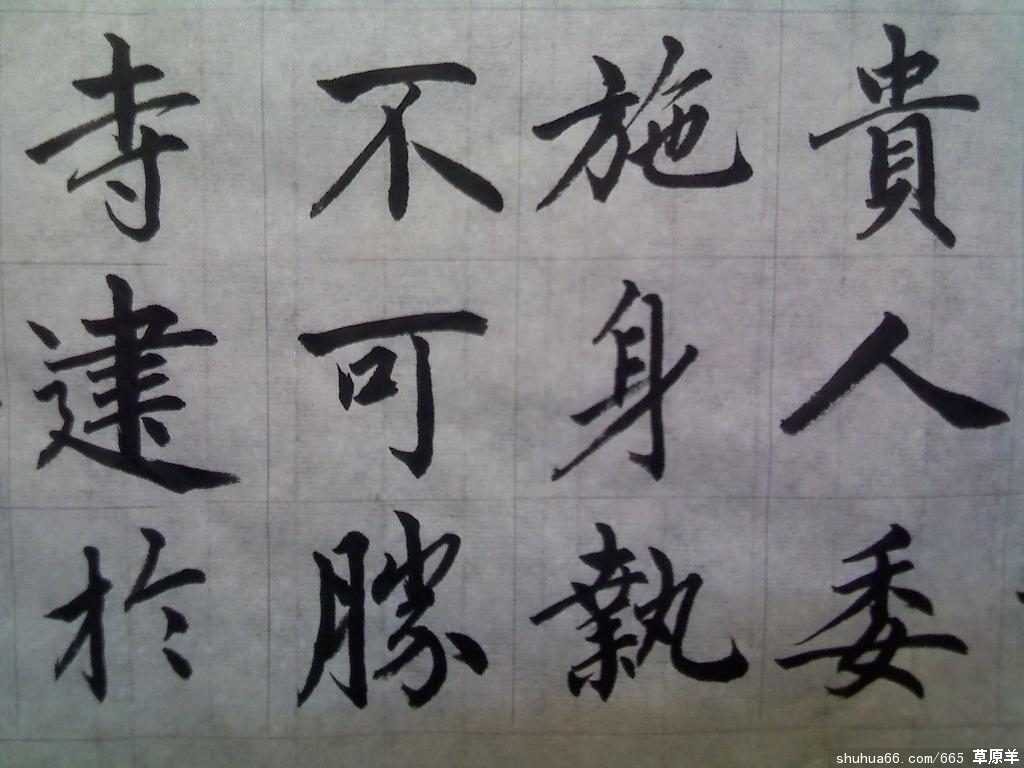 貴人委
施身執
不可勝
寺建於
shuhua66.com/665 草原羊